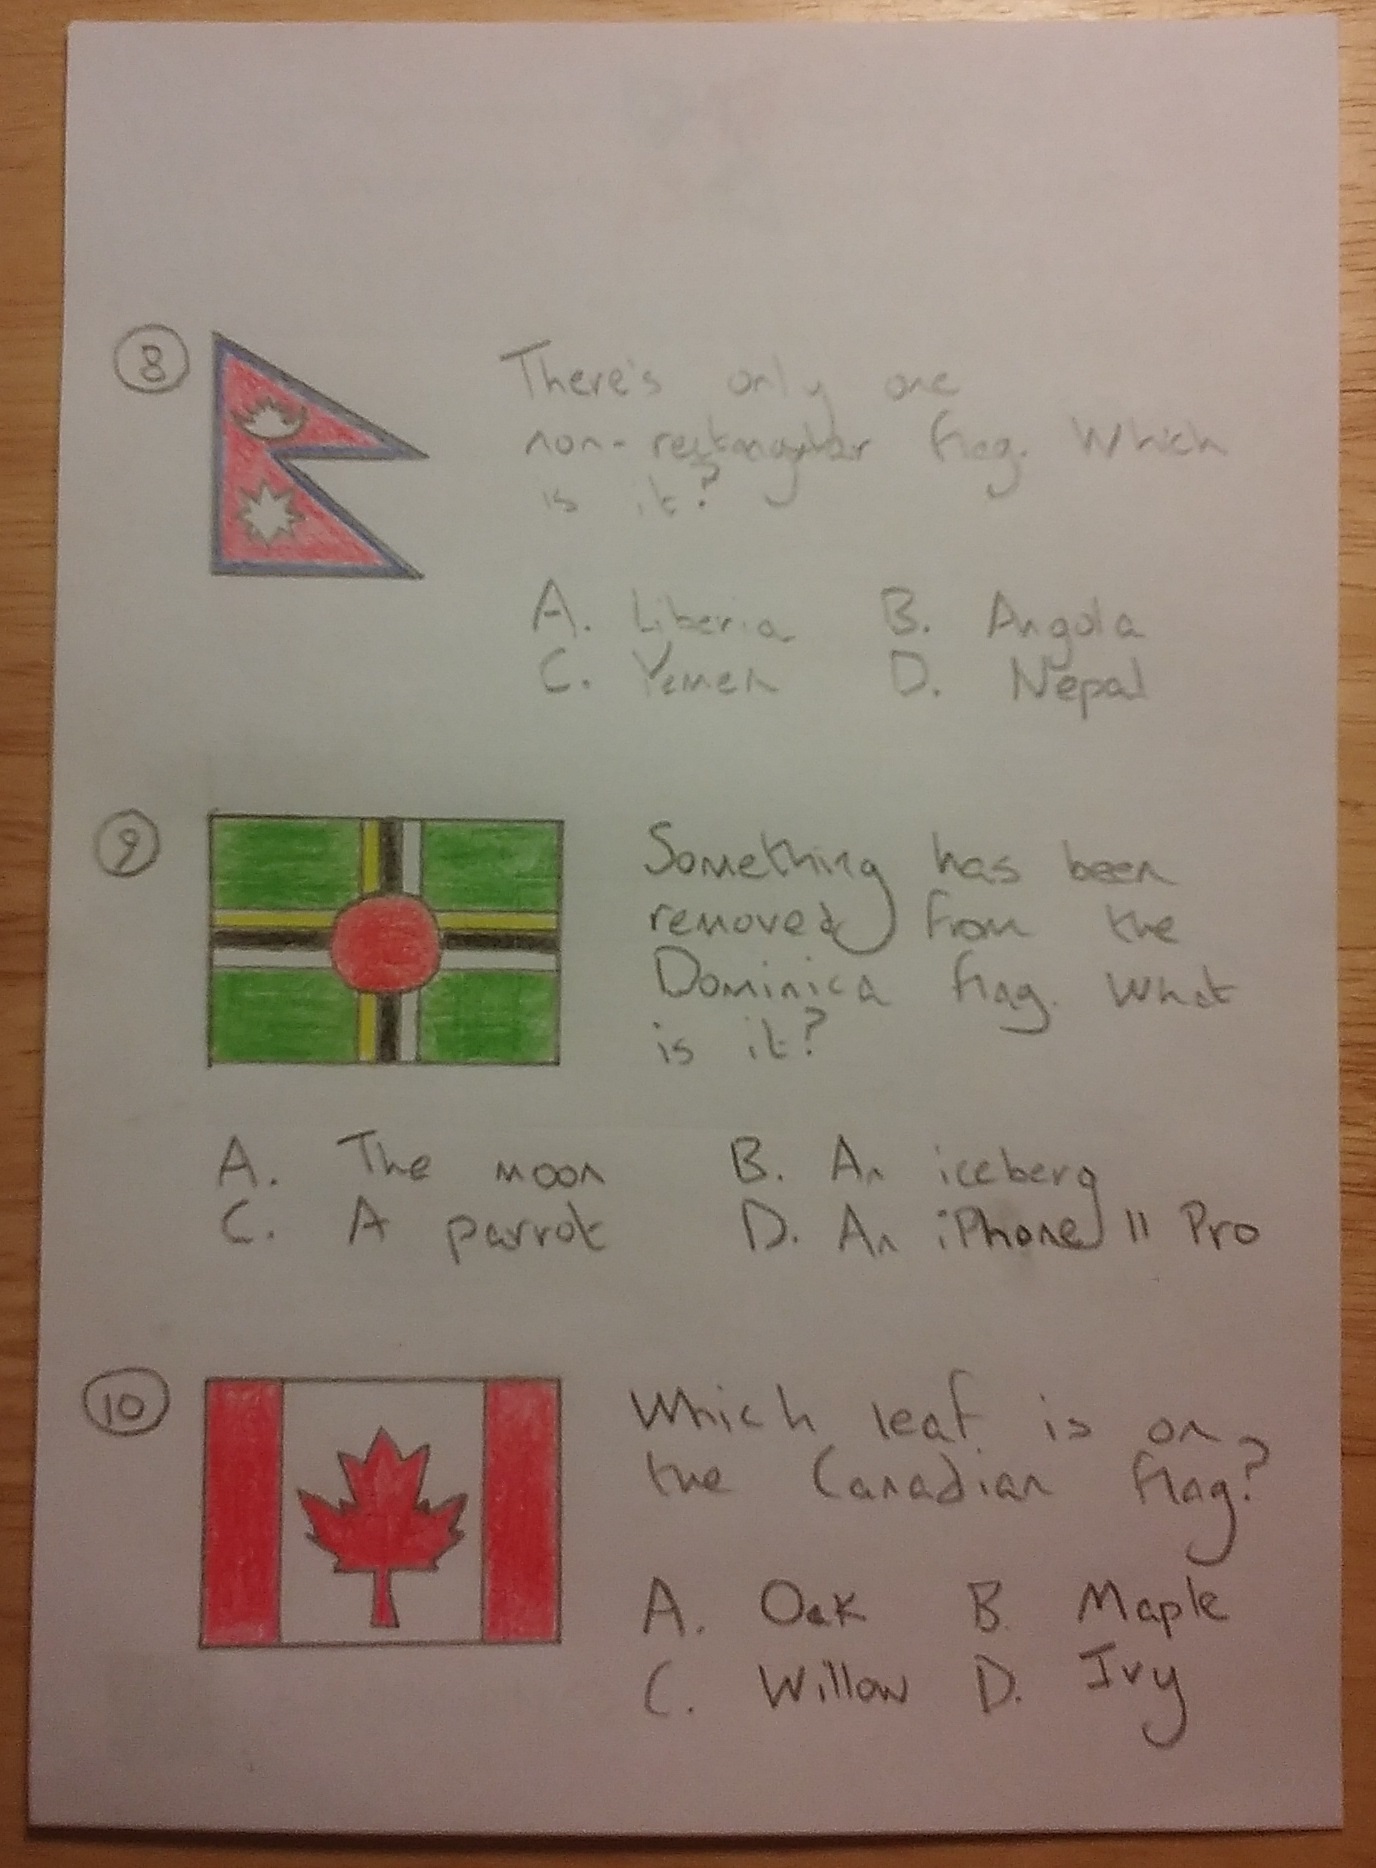 8 There's only one
non-rectangular flag. Which
is it?
A. Liberia B. Angola
C. Yemen D. Nepal
9 Something has been
removed from the
Dominica flag. What
is it?
A. The moon B. An iceberg
C. A parrot D. An iPhone 11 Pro
10 Which leaf is on
the Canadian flag?
A. Oak B. Maple
C. Willow D. Ivy